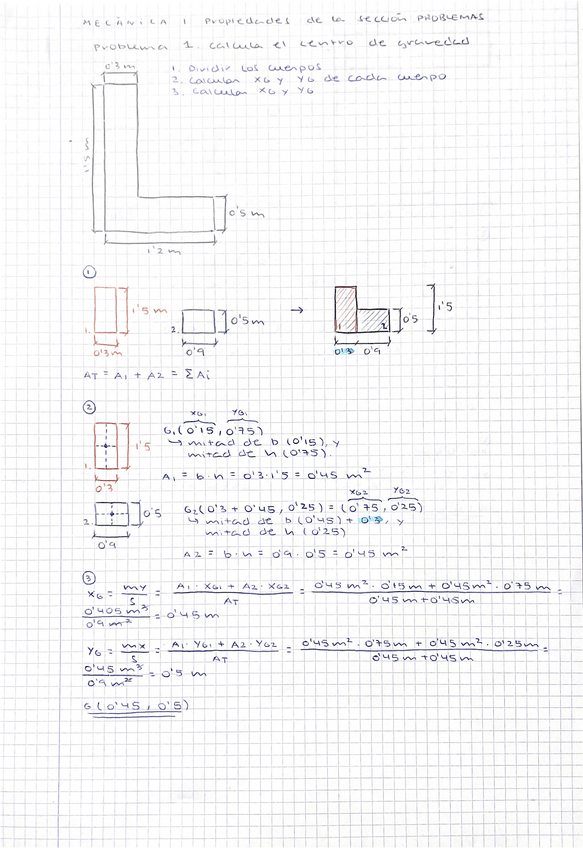 MECÁNICA 1 Propiedades de la sección PROBLEMAS
Problema 1. calcula el centro de gravedad
0'3 m
1. Dividir los cuerpos
2. calcular XG y YG de cada cuerpo
3. calcular XG y YG
1'5 m
0'5 m
1'2 m
①
1. 1'5 m
0'3 m
2. 0'5 m
0'9
→
1 2 0'5 1'5
0'3 0'9
AT = A1 + A2 = ΣAi
②
XG1 YG1
G1(0'15, 0'75)
↳ mitad de b (0'15), y
mitad de h (0'75).
1. 1'5
0'3
A1 = b·h = 0'3·1'5 = 0'45 m²
XG2 YG2
G2(0'3 + 0'45, 0'25) = (0'75, 0'25)
↳ mitad de b (0'45) + 0'3, y
mitad de h (0'25)
2. 0'5
0'9
A2 = b·h = 0'9·0'5 = 0'45 m²
③
XG = my/S = A1·XG1 + A2·XG2/AT = 0'45 m²·0'15 m + 0'45 m²·0'75 m/0'45 m + 0'45 m =
0'405 m³/0'9 m² = 0'45 m
YG = mx/S = A1·YG1 + A2·YG2/AT = 0'45 m²·0'75 m + 0'45 m²·0'25 m/0'45 m + 0'45 m =
0'45 m³/0'9 m² = 0'5 m
G(0'45, 0'5)